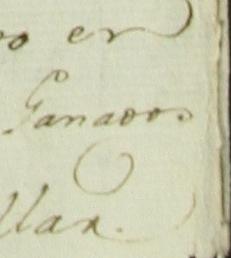 vo en
Ganados
llan.